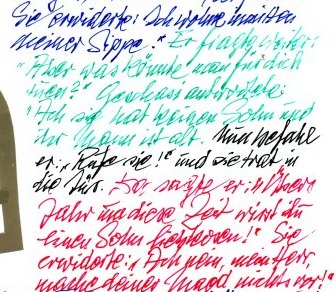 Sie erwiderte: Ich wohne inmitten
meiner Sippe." Er fragte weiter:
"Aber was könnte man für dich
tun?" Gechasi antwortete:
"Ach sie hat keinen Sohn und
ihr Mann ist alt. Nun befahl
er: „Rufe sie!" und sie trat in
die Tür. Da sagte er: "Übers
Jahr um diese Zeit wirst du
einen Sohn liebkosen!" Sie
erwiderte: "Ach nein, mein Herr,
mache deiner Magd nichts vor!"